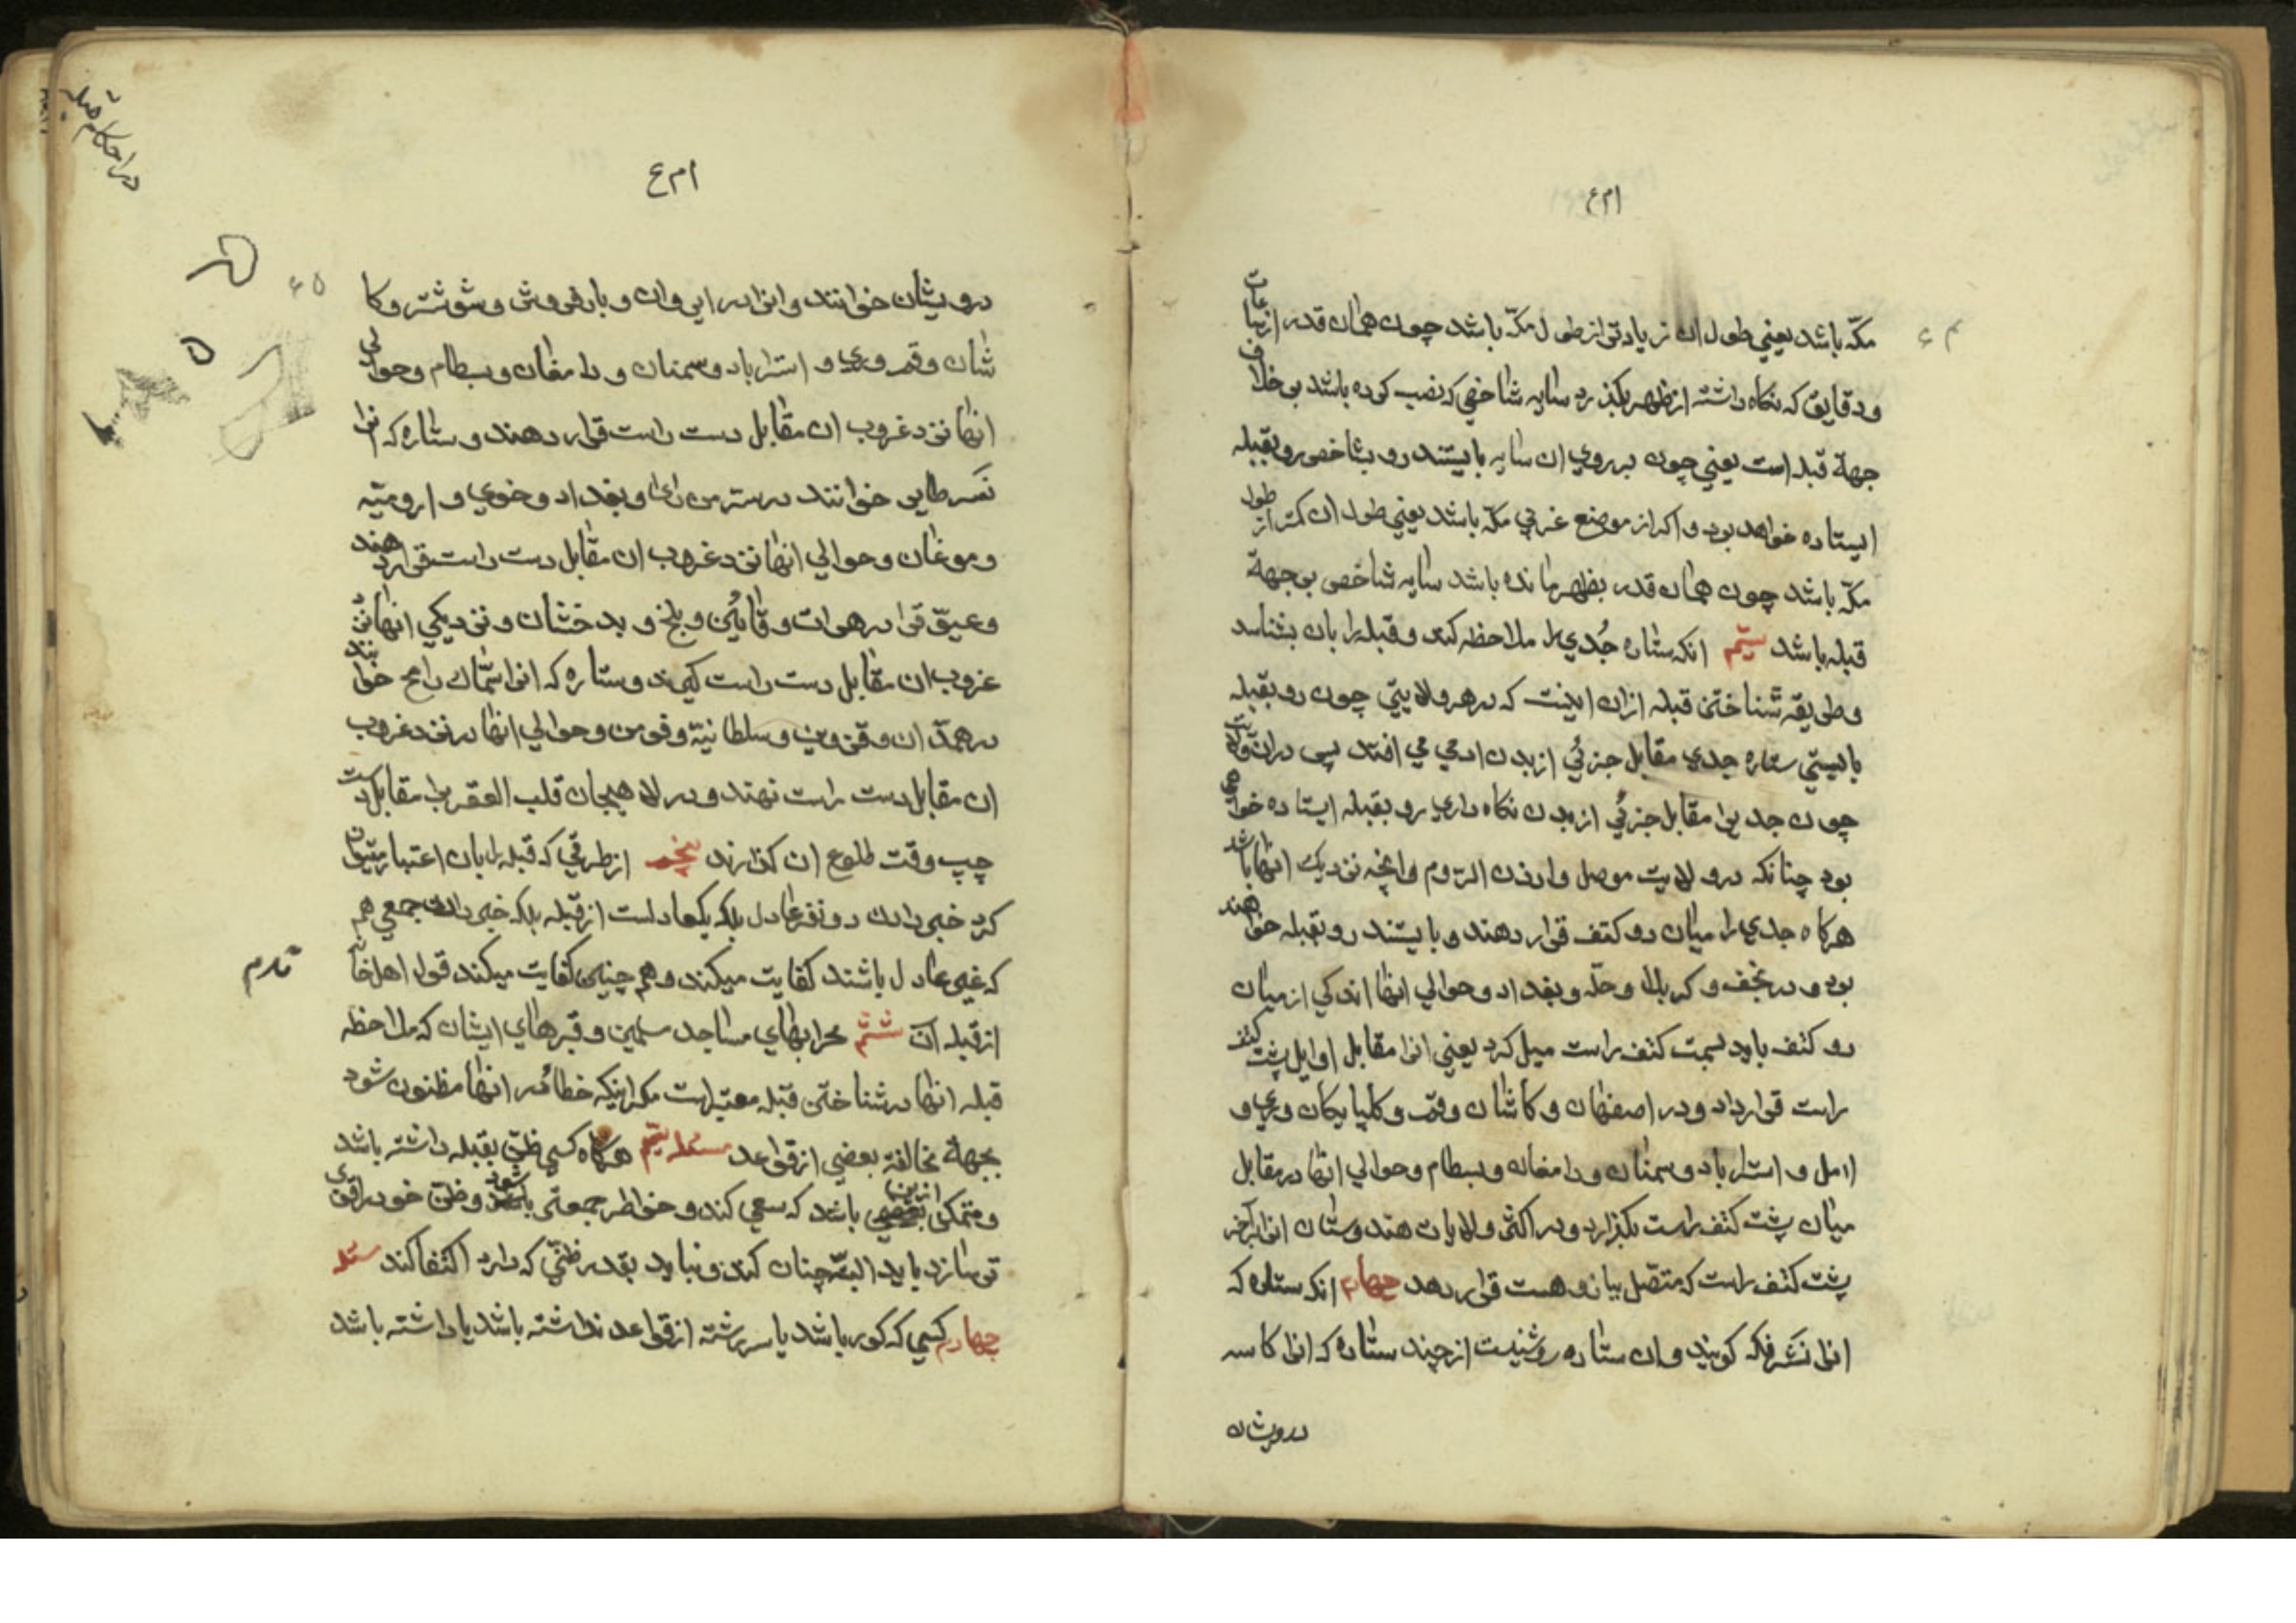 مکّه باشد یعنی طول ان زیادتر از طول مکّه باشد چون همان قدر از ساعات
و دقایق که نکاه داشته از ظهر بکذرد سایه شاخصی که نصب کرده باشد بی خلاف
جهة قبله است یعنی چون بر روی ان سایه بایستند رو بشاخص رو بقبله
ایستاده خواهد بود و اکر از موضع غربی مکّه باشد یعنی طول ان کمتر از طول
مکّه باشد چون همان قدر بظهر مانده باشد سایه شاخص بی جهة
قبله باشد سیّم انکه ستاره جُدی را ملاحظه کند و قبله را بان بشناسد
و طریقه شناختن قبله ازان اینست که در هر ولایتی چون رو بقبله
بایستی ستاره جدی مقابل جزئی از بدن ادمی می افتد پس در ان ولایت
چون جدی را مقابل جزئی از بدن نکاه داری رو بقبله ایستاده خواهی
بود چنانکه در ولایت موصل و ارزن الرّوم و انچه نزدیک انها باشد
هرکاه جدی را میان دو کتف قرار دهند و بایستند رو بقبله خواهند
بود و در نجف و کربلا و حلّه و بغداد و حوالی انها اندکی از میان
دو کتف باید بسمت کتف راست میل کرد یعنی انرا مقابل اوایل پشت کتف
راست قرار داد و در اصفهان و کاشان و قم و کلپایکان و ری و
امل و استراباد و سمنان و دامغان و بسطام و حوالی انها در مقابل
میان پشت کتف راست بکذارد و در اکثر ولایات هندوستان انرا بر اخر
پشت کتف راست که متّصل ببازوهست قرار دهد چهارم انکه ستاره که
انرا نَسْر فکه کویند و ان ستاره روشنیست از چند ستاره که انرا کاسه
درویشان
درویشان خوانند و انرا در ایروان و بارفروش و شوشتر و کا
شان و قم و ری و استراباد و سمنان و دامغان و بسطام و حوالی
انها نزد غروب ان مقابل دست راست قرار دهند و ستاره که انرا
نَسر طایر خوانند در سرّ من رای و بغداد و خوی و ارومیّه
و موغان و حوالی انها نزد غروب ان مقابل دست راست قرار دهند
و عیّوق را در هرات و قایُن و بلخ و بدخشان و نزدیکی انها نزد
غروب ان مقابل دست راست کیرند و ستاره که انرا سّماك رامح خوانند
در همدان و قزوین و سلطانیّه و قومن و حوالی انها در نزد غروب
ان مقابل دست راست نهند و در لاهیجان قلب العقرب را مقابل دست
چپ وقت طلوع ان کذارند پنجم از طرقی که قبله را بان اعتبار میتوان
کرد خبر دادن دو نفر عادل بلکه یکعادلست از قبله بلکه خبر دادن جمعی هم
که غیر عادل باشند کفایت میکند و هم چنین کفایت میکند قول اهل خانه
از قبله ان ششم محرابهای مساجد مسلمین و قبرهای ایشان که ملاحظه
قبله انها در شناختن قبله معتبر است مکر اینکه خطا در انها مظنون شود
بجهة مخالفة بعضی از قواعد مسئله سیّم هرکاه کسی ظنّی بقبله داشته باشد
و متمکن از این باشد که سعی کند و خواطر جمعتر شود و ظنّ خود را قوی
تر سازد باید البتّه چنان کند و نباید بقدر ظنّی که دارد اکتفا کند مسئله
چهارم کسی که کور باشد یا سررشته از قواعد نداشته باشد یا داشته باشد